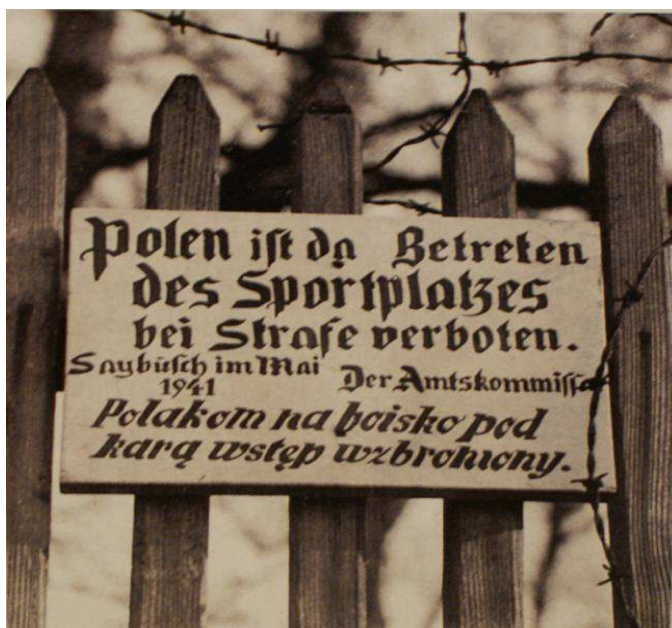 Polen ist da Betreten
des Sportplatzes
bei Strafe verboten.
Saybüsch im Mai
1941 Der Amtskommissar
Polakom na boisko pod
karą wstęp wzbroniony.